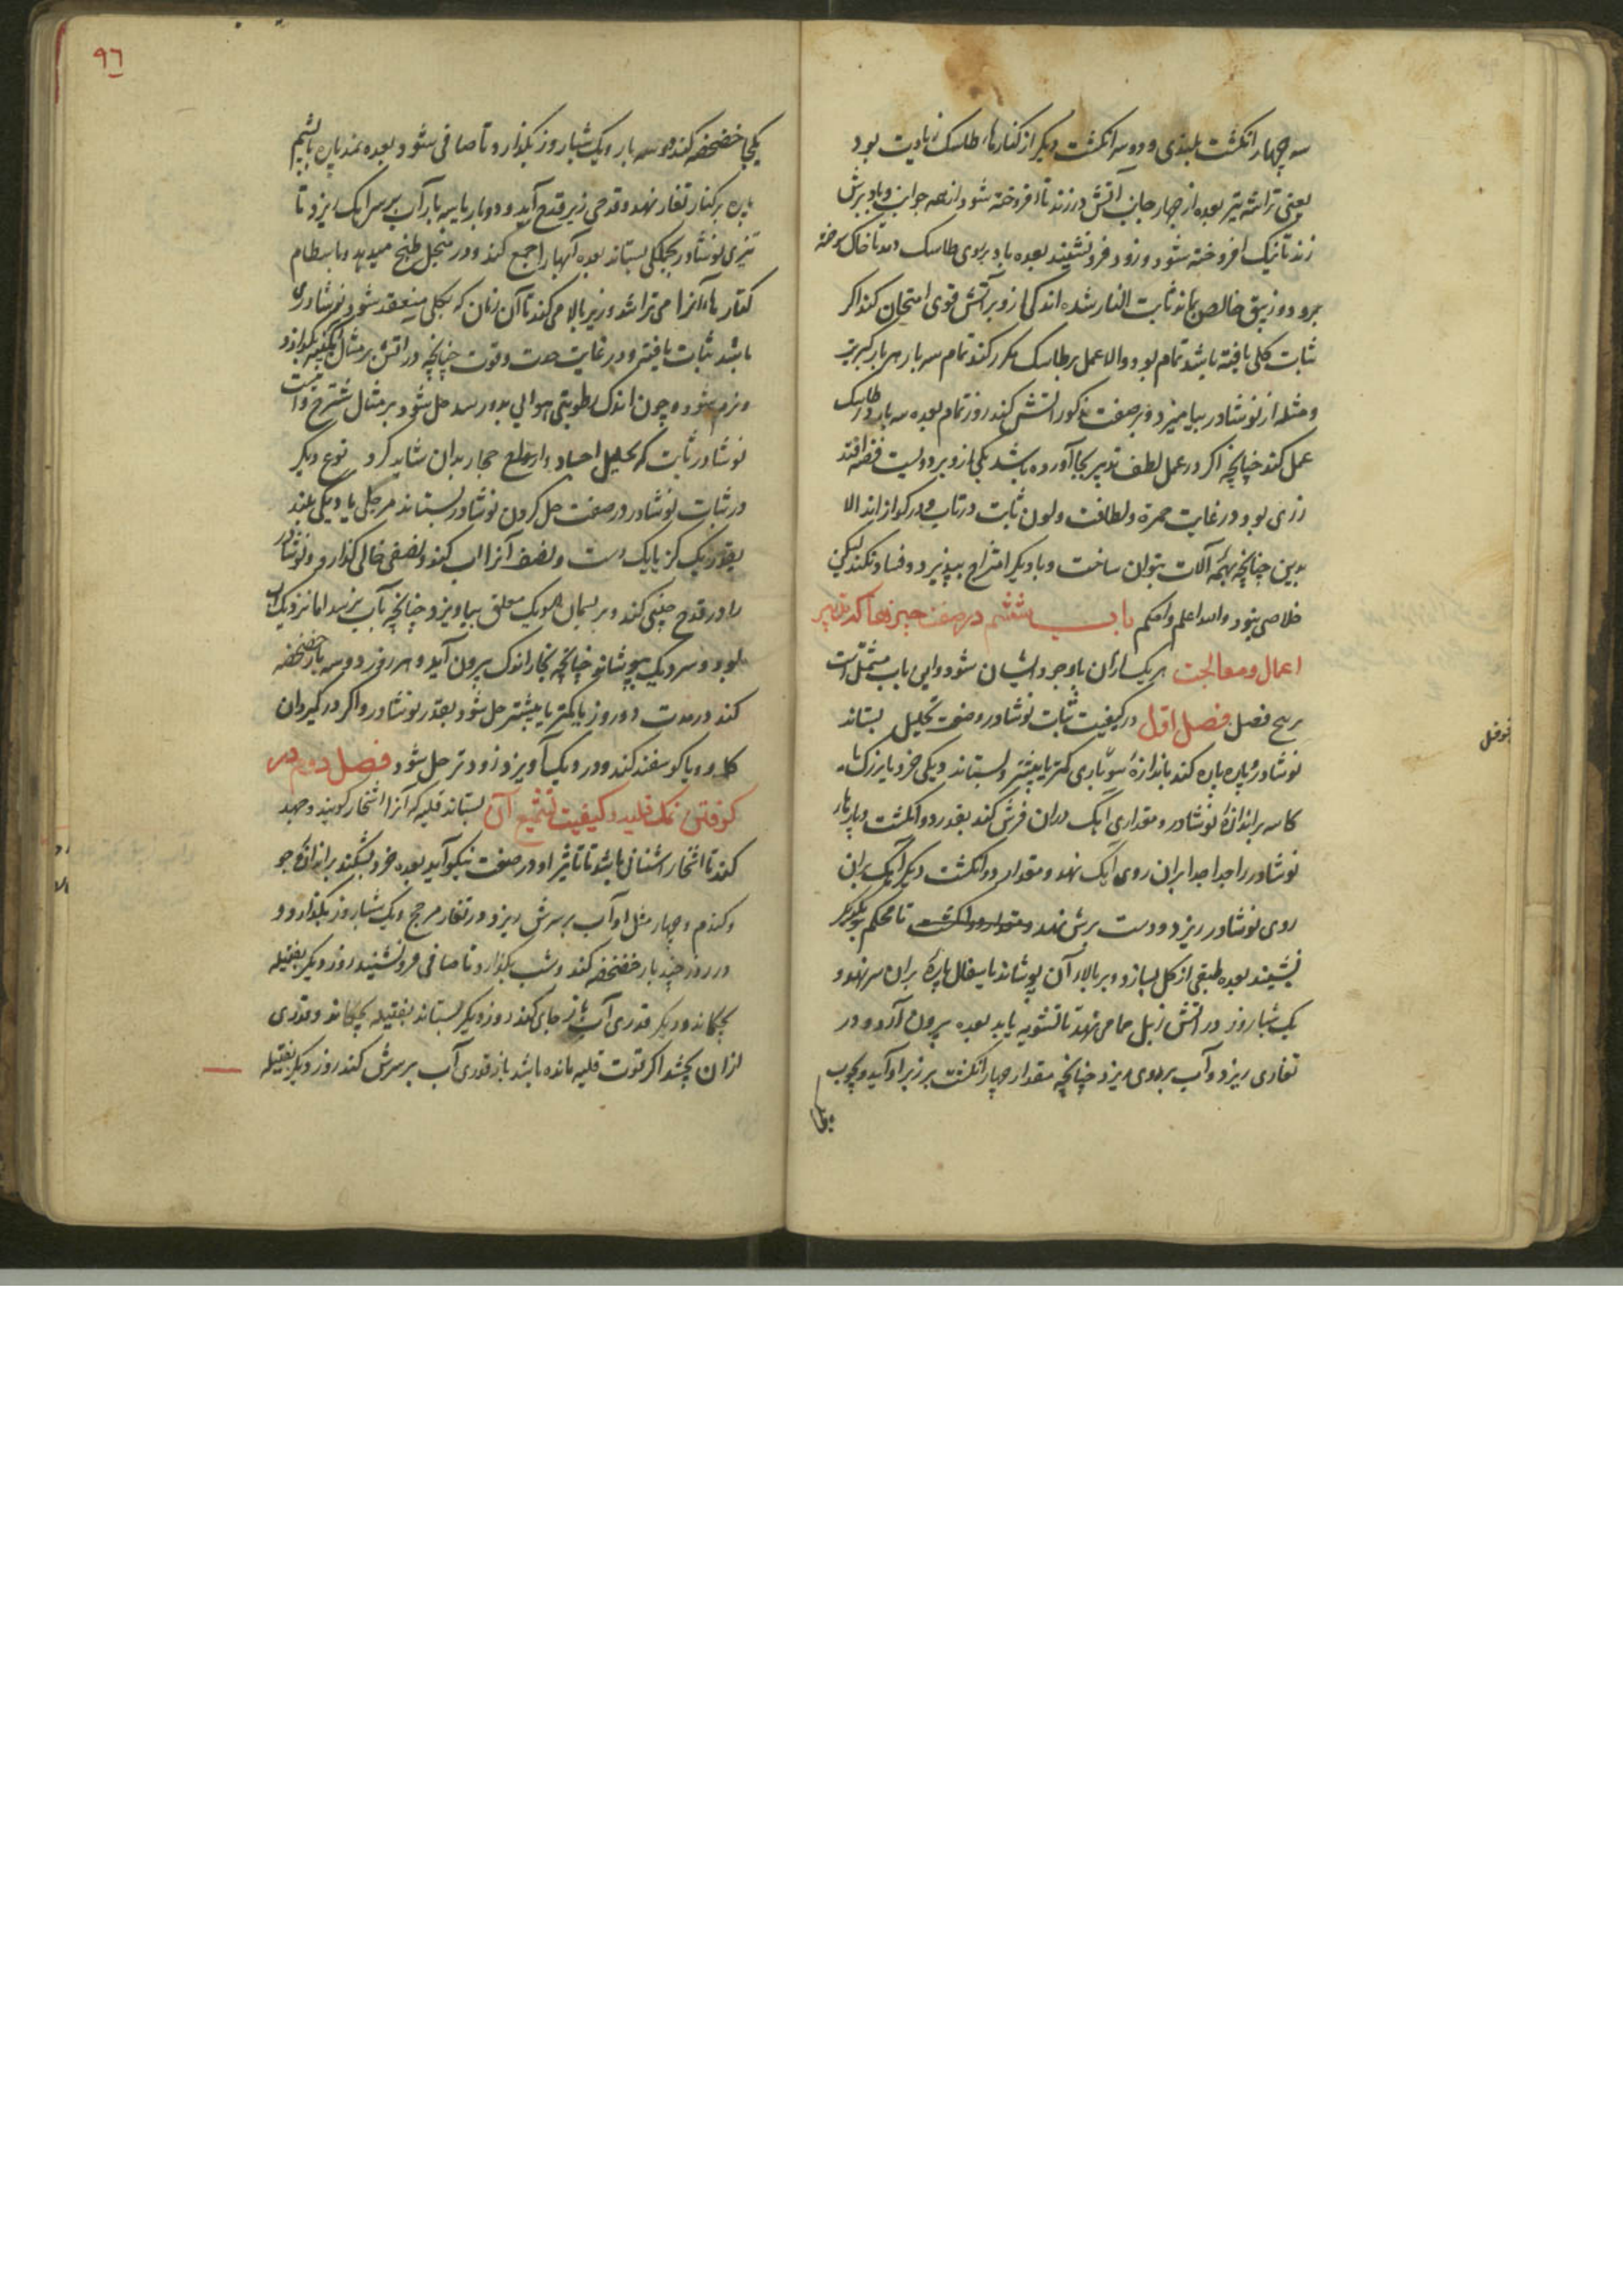 سه چهار انکشت بلندی و دو سه انکشت دیکر از کنارها، طاسک زیادت بود
یعنی تراشه تیر بعده از چهار جانب آتش در زند تا افروخته شود از همه جوانب و باد برش
زند تا نیک افروخته شود و زود فرو نشیند بعده باد بروی طاسک دمد تا خاک سوخته
برود و زیبق خالص بماند ثابت النار شده اندکی ازو بر آتش قوی امتحان کند اکر
ثبات کلی یافته باشد تمام بود والا عمل بر طاسک مکرر کند تمام سه بار هر بار کبریت
و مثله از نوشادر بیامیزد و بر صفت مذکور آتش کند روز تمام بعده سه بار در طاسک
عمل کند چنانچه اکر در عمل لطف تدبیر بجا آورده باشد یکی ازو بر دویست فضه افتد
زری بود در غایت حمرة و لطافت و لون ثابت در تاب و در کواز اند الا
بدین چنانچه بهمه آلات بتوان ساخت و با دیکر امتزاج بپذیرد و فساد نکند لیکن
خلاصی بنود والله اعلم واحکم باب ششم در صفت چیزها که تدبیر
اعمال و معالجت هر یک ازان باوجود ایشان شود و این باب مشتمل است
بر پنج فصل فصل اول در کیفیت ثبات نوشادر و صفت تحلیل بستاند
نوشادر و پاره پاره کند باندازهٔ سوپاری کمتر یا بیشتر و بستاند دیکی خرد یا بزرک یا
کاسه بر اندازهٔ نوشادر و مقداری آهک دران فرش کند بقدر دو انکشت و پارها،
نوشادر را جدا جدا بران روی آهک نهد و مقدار دو انکشت دیکر آهک بران
روی نوشادر ریزد و دست برش نهد و مقدار دو انکشت تا محکم بر یکدیکر
نشیند بعده طبقی از کل بسازد و بر بالاء آن پوشاند یا سفال پارهٔ بران سر نهد و
یک شباروز در آتش زبل حمامی نهد تا تشویه یابد بعده بیرون آرد و در
تغاری ریزد و آب بر روی ریزد چنانچه مقدار چهار انکشت بر زبر او آید و بچوب
نوفل
یکجا خضخضه کند دو سه بار و یک شباروز بکذارد تا صافی شود بعده نمد پاره یا پشم
پاره بر کنار تغار نهد و قدحی زیر قدح آید و دو بار یا سه بار آب بر سر آهک ریزد تا
تیزی نوشادر بجملکی بستاند بعده آبها را جمع کند و در منجل طبخ میدهد و باسطام
کنارها، آنرا می تراشد و زیر بالا می کند تا آن زمان که بکلی منعقد شود نوشادری
باشد ثبات یافته و در غایت حدت و قوت چنانچه در آتش بر مثال بکدازد
و نرم شود و چون اندک رطوبتی هوایی بدو رسد حل شود بر مثال و اینست
نوشادر ثابت که تحلیل اجساد و ارواح حجار بدان شاید کرد نوع دیکر
در ثبات نوشادر در صفت حل کردن نوشادر بستاند مرجلی یا دیکی بلند
بقدر یک کز یا یک دست و نصف آنرا آب کند و نصفی خالی کذارد و نوشادر
را در قدح چینی کند و بریسمان مویک معلق بیاویزد چنانچه بآب نرسد اما نزدیک آب
بود و سر دیک بپوشاند چنانچه بخار اندک بیرون آید و هر روز دو سه بار خضخضه
کند در مدت دو روز یا کمتر یا بیشتر حل شود بقدر نوشادر و اکر در کیروان
کاو و یا کوسفند کند و در دیک آویزد زودتر حل شود فصل دوم در
کوفتن نمک قلیه و کیفیت تشمیع آن بستاند قلیه که آنرا اشخار کویند و جهد
کند تا اشخار اشنانی باشد تا تاثیر او در صفت نیکو آید بعده خرد بشکند براندازهٔ جو
و کندم و چهار مثل او آب بر سرش ریزد در تغار مرجح و یک شباروز بکذارد و
در روز چند بار خضخضه کند و شب بکذارد تا صافی فرو نشیند روز دیکر بفتیله
بچکاند و دیکر قدری آب باز جای کند روز دیکر بستاند بفتیله بچکاند و قدری
ازان بچشد اکر قوت قلیه مانده باشد باز قدری آب بر سرش کند روز دیکر بفتیله
٩٦